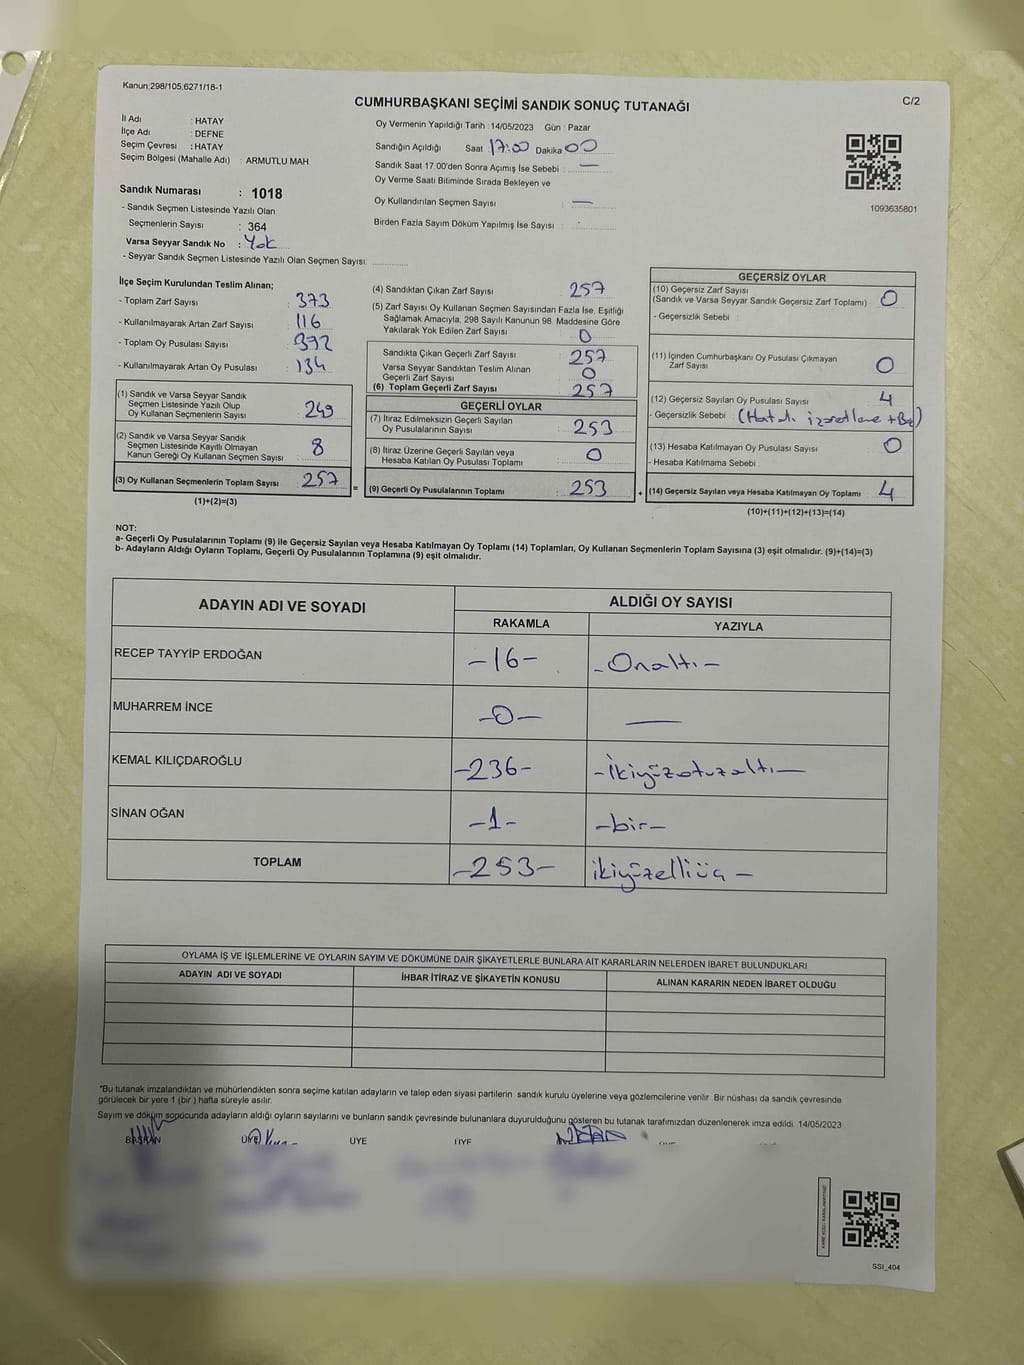 Kanun:298/105,6271/18-1
CUMHURBAŞKANI SEÇİMİ SANDIK SONUÇ TUTANAĞI
C/2
İl Adı : HATAY
İlçe Adı : DEFNE
Seçim Çevresi : HATAY
Seçim Bölgesi (Mahalle Adı) : ARMUTLU MAH.
Sandık Numarası : 1018
- Sandık Seçmen Listesinde Yazılı Olan
Seçmenlerin Sayısı : 364
Varsa Seyyar Sandık No : Yok
- Seyyar Sandık Seçmen Listesinde Yazılı Olan Seçmen Sayısı:
Oy Vermenin Yapıldığı Tarih : 14/05/2023 Gün : Pazar
Sandığın Açıldığı Saat 17:00 Dakika 00
Sandık Saat 17.00'den Sonra Açımış İse Sebebi : —
Oy Verme Saati Bitiminde Sırada Bekleyen ve
Oy Kullandırılan Seçmen Sayısı —
Birden Fazla Sayım Döküm Yapılmış İse Sayısı :
1093635801
İlçe Seçim Kurulundan Teslim Alınan;
- Toplam Zarf Sayısı 373
- Kullanılmayarak Artan Zarf Sayısı 116
- Toplam Oy Pusulası Sayısı 392
- Kullanılmayarak Artan Oy Pusulası 134
(1) Sandık ve Varsa Seyyar Sandık
Seçmen Listesinde Yazılı Olup
Oy Kullanan Seçmenlerin Sayısı 249
(2) Sandık ve Varsa Seyyar Sandık
Seçmen Listesinde Kayıtlı Olmayan
Kanun Gereği Oy Kullanan Seçmen Sayısı 8
(3) Oy Kullanan Seçmenlerin Toplam Sayısı 257
(1)+(2)=(3)
(4) Sandıktan Çıkan Zarf Sayısı 257
(5) Zarf Sayısı Oy Kullanan Seçmen Sayısından Fazla İse, Eşitliği
Sağlamak Amacıyla, 298 Sayılı Kanunun 98. Maddesine Göre
Yakılarak Yok Edilen Zarf Sayısı 0
Sandıkta Çıkan Geçerli Zarf Sayısı 257
Varsa Seyyar Sandıktan Teslim Alınan
Geçerli Zarf Sayısı 0
(6) Toplam Geçerli Zarf Sayısı 257
GEÇERLİ OYLAR
(7) İtiraz Edilmeksizin Geçerli Sayılan
Oy Pusulalarının Sayısı 253
(8) İtiraz Üzerine Geçerli Sayılan veya
Hesaba Katılan Oy Pusulası Toplamı 0
= (9) Geçerli Oy Pusulalarının Toplamı 253
GEÇERSİZ OYLAR
(10) Geçersiz Zarf Sayısı
(Sandık ve Varsa Seyyar Sandık Geçersiz Zarf Toplamı) 0
- Geçersizlik Sebebi :
(11) İçinden Cumhurbaşkanı Oy Pusulası Çıkmayan
Zarf Sayısı 0
(12) Geçersiz Sayılan Oy Pusulası Sayısı 4
- Geçersizlik Sebebi (Hatalı
(13) Hesaba Katılmayan Oy Pusulası Sayısı 0
- Hesaba Katılmama Sebebi
+ (14) Geçersiz Sayılan veya Hesaba Katılmayan Oy Toplamı 4
(10)+(11)+(12)+(13)=(14)
NOT:
a- Geçerli Oy Pusulalarının Toplamı (9) ile Geçersiz Sayılan veya Hesaba Katılmayan Oy Toplamı (14) Toplamları, Oy Kullanan Seçmenlerin Toplam Sayısına (3) eşit olmalıdır. (9)+(14)=(3)
b- Adayların Aldığı Oyların Toplamı, Geçerli Oy Pusulalarının Toplamına (9) eşit olmalıdır.
ADAYIN ADI VE SOYADI
ALDIĞI OY SAYISI
RAKAMLA YAZIYLA
RECEP TAYYİP ERDOĞAN -16- -Onaltı-
MUHARREM İNCE -0- —
KEMAL KILIÇDAROĞLU -236- -İkiyüzotuzaltı-
SİNAN OĞAN -1- -bir-
TOPLAM -253- ikiyüzelliüç-
OYLAMA İŞ VE İŞLEMLERİNE VE OYLARIN SAYIM VE DÖKÜMÜNE DAİR ŞİKAYETLERLE BUNLARA AİT KARARLARIN NELERDEN İBARET BULUNDUKLARI
ADAYIN ADI VE SOYADI İHBAR İTİRAZ VE ŞİKAYETİN KONUSU ALINAN KARARIN NEDEN İBARET OLDUĞU
*Bu tutanak imzalandıktan ve mühürlendikten sonra seçime katılan adayların ve talep eden siyasi partilerin sandık kurulu üyelerine veya gözlemcilerine verilir. Bir nüshası da sandık çevresinde
görülecek bir yere 1 (bir) hafta süreyle asılır.
Sayım ve döküm sonucunda adayların aldığı oyların sayılarını ve bunların sandık çevresinde bulunanlara duyurulduğunu gösteren bu tutanak tarafımızdan düzenlenerek imza edildi. 14/05/2023
BAŞKAN ÜYE ÜYE ÜYE
SSI_404